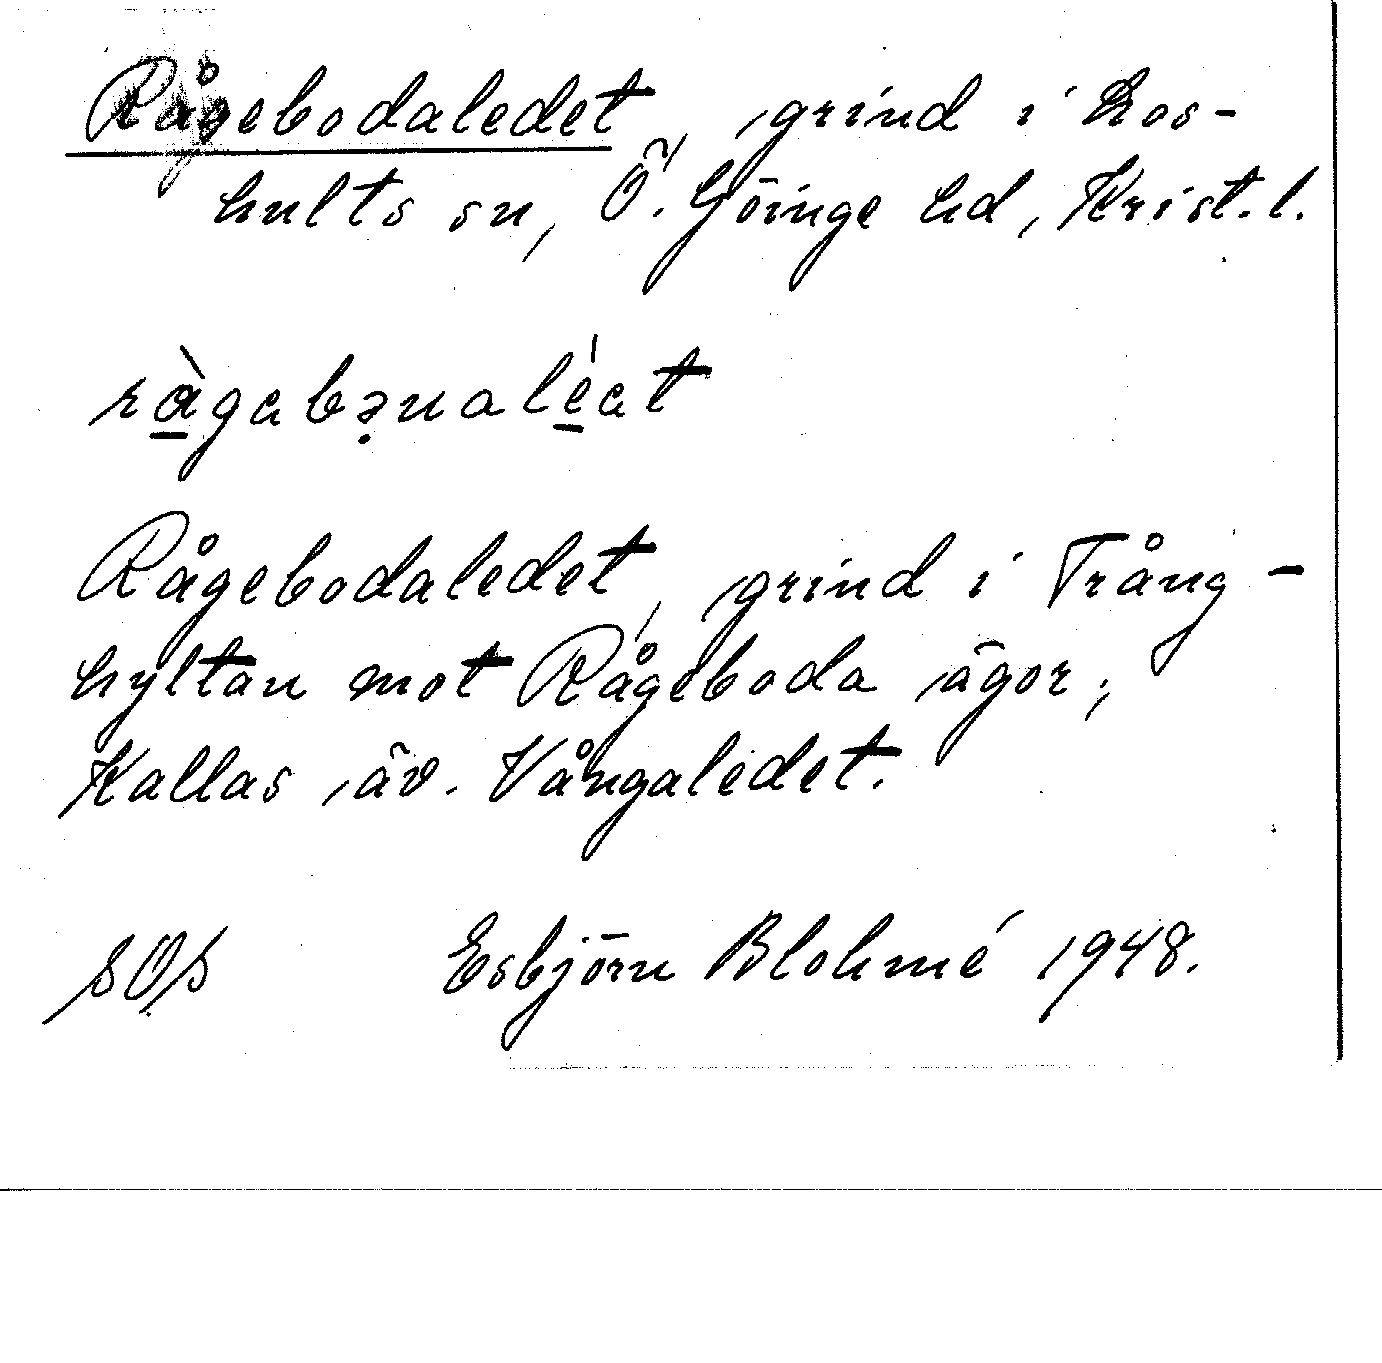 Rågebodaledet, grind i Los-
hults sn, Ö. Göinge hd, Krist. l.
ràgabǝnaléat
Rågebodaledet, grind i Trång-
hyltan mot Rågeboda ägor;
Kallas äv. Vångaledet.
SOS Esbjörn Blohmé 1948.